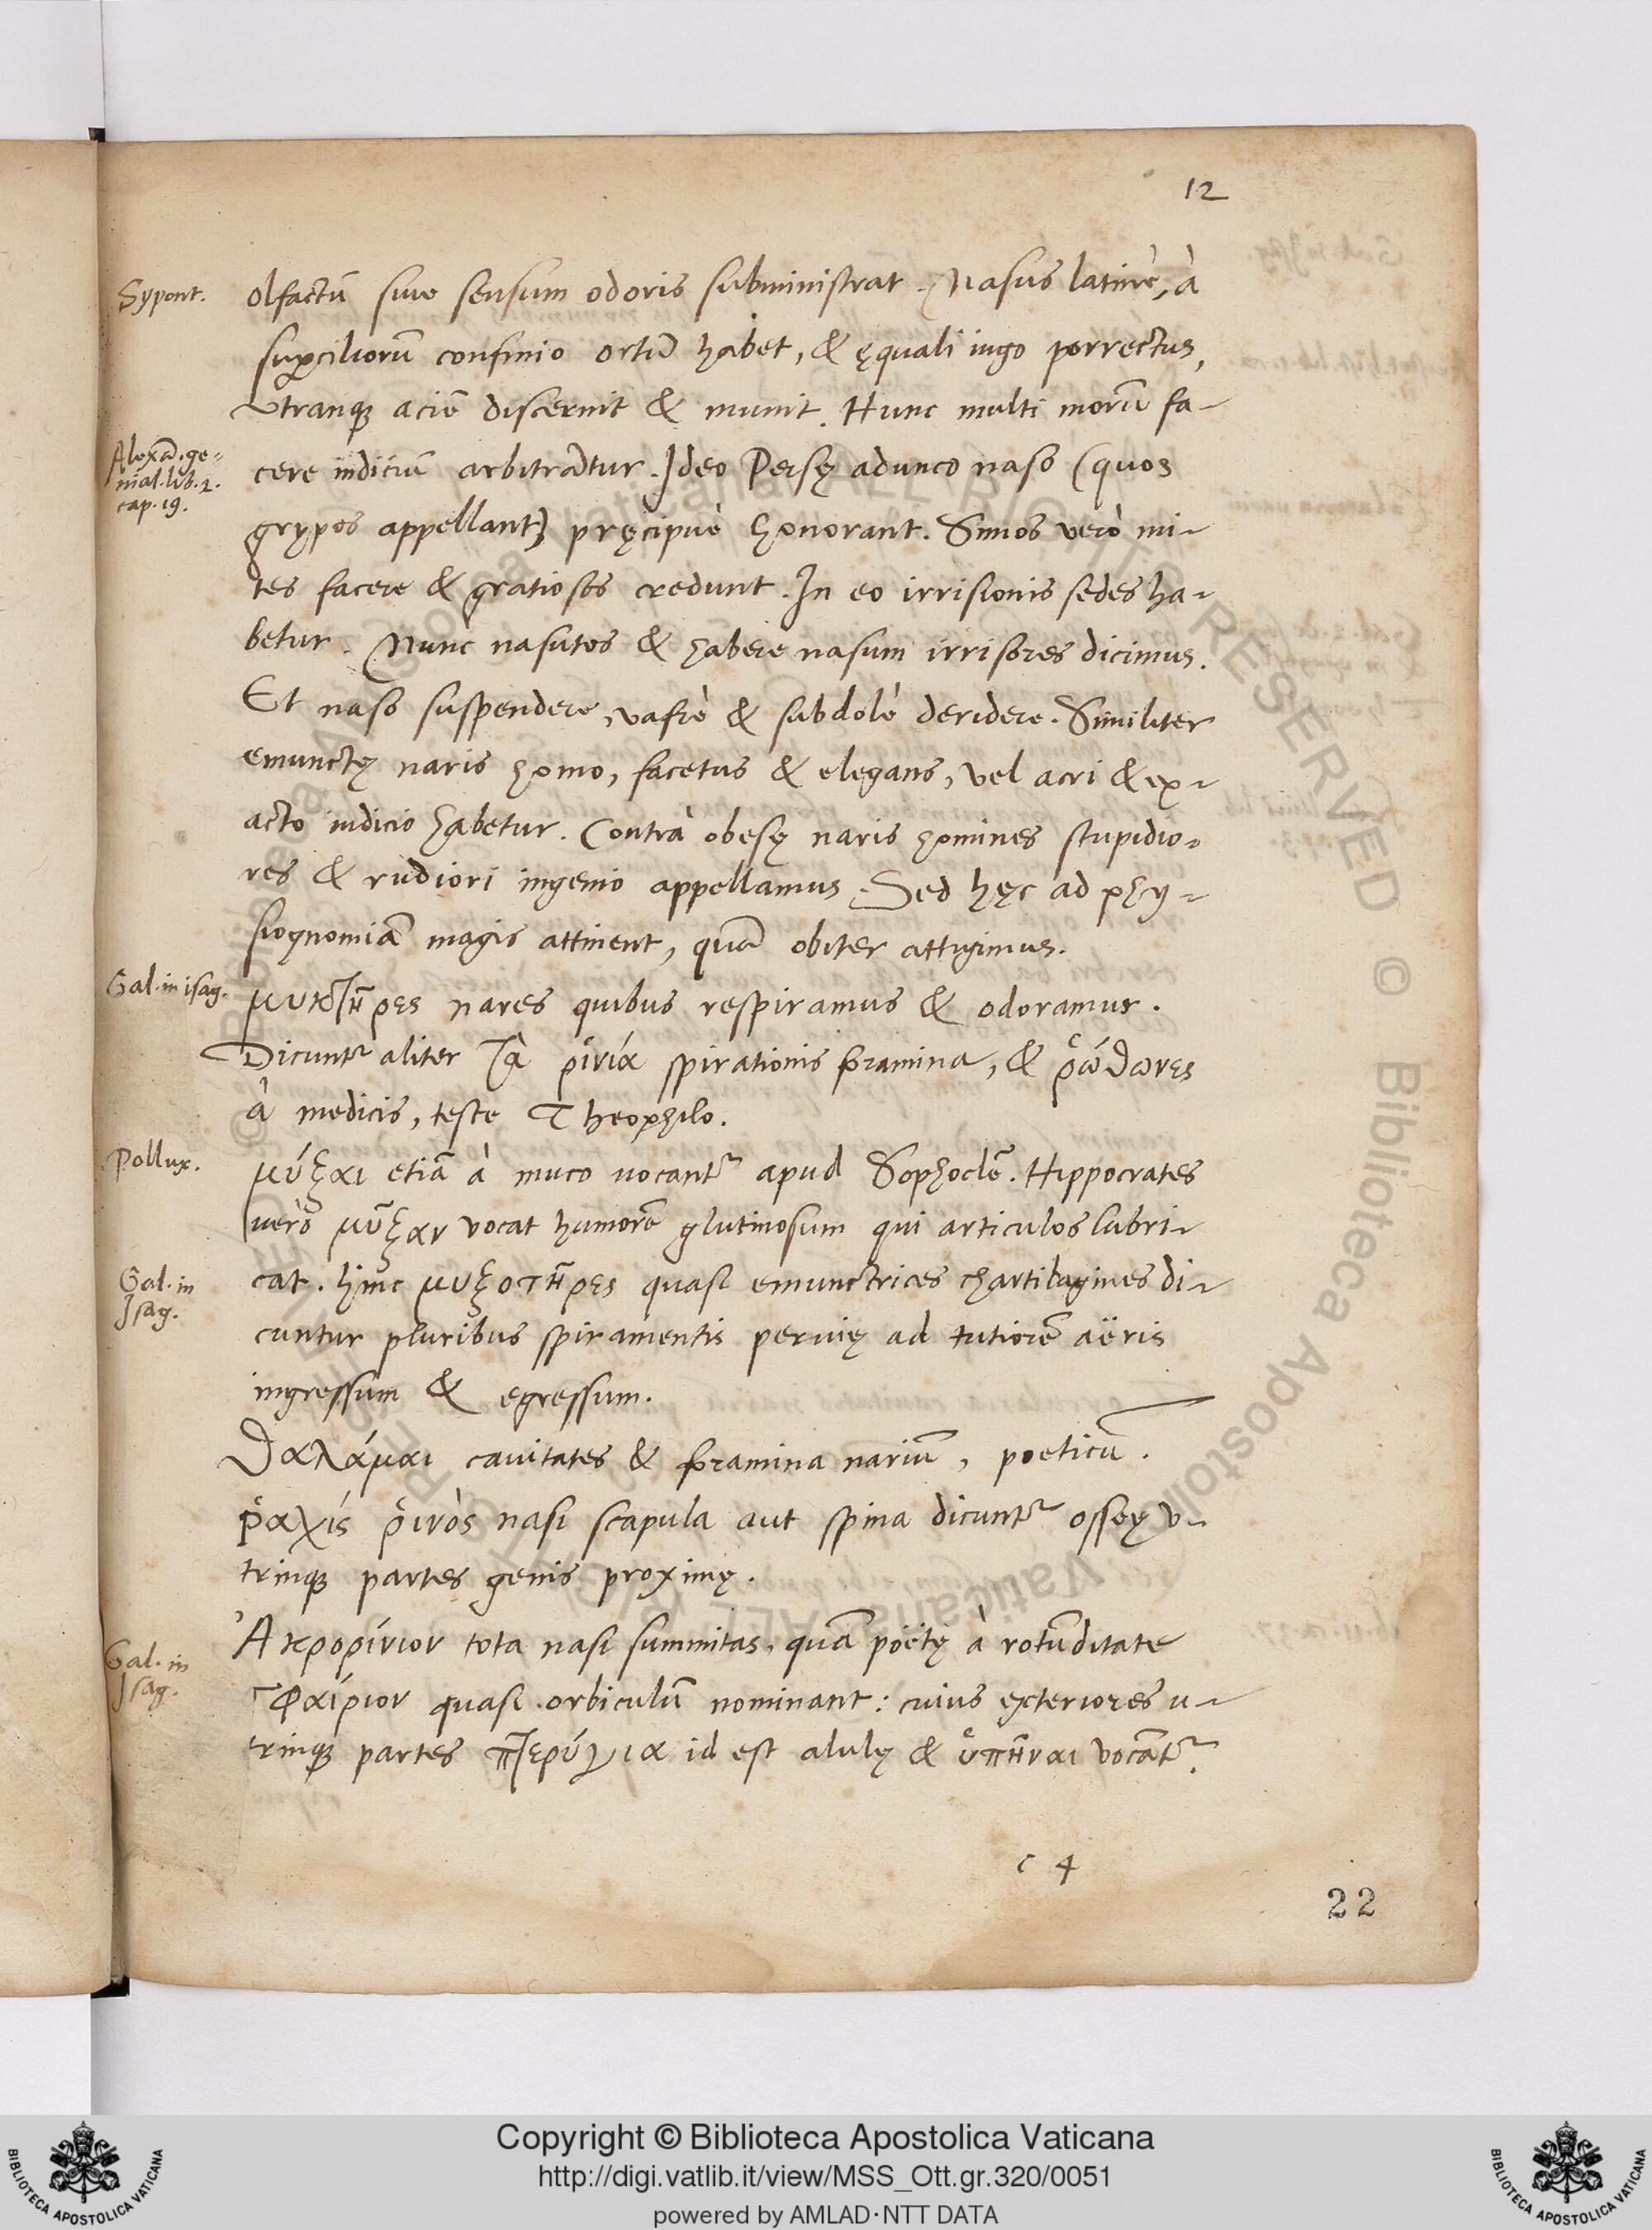 12
Sypont.
olfactũ siue sensum odoris subministrat. Nasus latinè, à
suꝑciliorũ confinio ortũ habet, & ęquali iugo porrectus,
vtranqꝫ aciẽ discernit & munit. Hunc multi morũ fa-
Alexã. ge-
nial. lib. 2.
cap. 19.
cere indiciũ arbitrãtur. Ideo Persę adunco naso (quos
grypos appellant) pręcipuè honorant. Simos verò mi-
tes facere & gratiosos credunt. In eo irrisionis sedes ha-
betur. Nunc nasutos & habere nasum irrisores dicimus.
Et naso suspendere, vafrè & subdolè deridere. Similiter
emunctę naris homo, facetus & elegans, vel acri & ex-
acto iudicio habetur. Contrà obesę naris homines stupidio-
res & rudiori ingenio appellamus. Sed hęc ad phy-
siognomiã magis attinent, quã obiter attigimus.
Gal. in isag.
μυκτῆρες nares quibus respiramus & odoramur.
Dicuntr aliter τὰ ῥινία spirationis foramina, & ῥώθωνες
à medicis, teste Theophilo.
Pollux.
μύξαι etiã à muco uocantr apud Sophoclẽ. Hippocrates
uerò μῦξαν vocat humorẽ glutinosum qui articulos lubri-
Gal. in
Isag.
cat. hinc μυξοτῆρες quasi emunctrices chartilagines di-
cuntur pluribus spiramentis peruię ad tutiorẽ aëris
ingressum & egressum.
θαλάμαι cauitates & foramina nariũ, poeticũ.
ῥαχίς ῥινὸς nasi scapula aut spina dicuntr osseę v-
trinqꝫ partes genis proximę.
Gal. in
Isag.
Ἀκρορίνιον tota nasi summitas, quã poëtę à rotũditate
σφαίριον quasi orbiculũ nominant: cuius exteriores u-
trinqꝫ partes πτερύγια id est alulę & ὑπῆναι vocãtr.
c 4
22
© Biblioteca Apostolica Vaticana ALL RIGHTS RESERVED
Copyright © Biblioteca Apostolica Vaticana
http://digi.vatlib.it/view/MSS_Ott.gr.320/0051
powered by AMLAD·NTT DATA
BIBLIOTECA APOSTOLICA VATICANA
BIBLIOTECA APOSTOLICA VATICANA